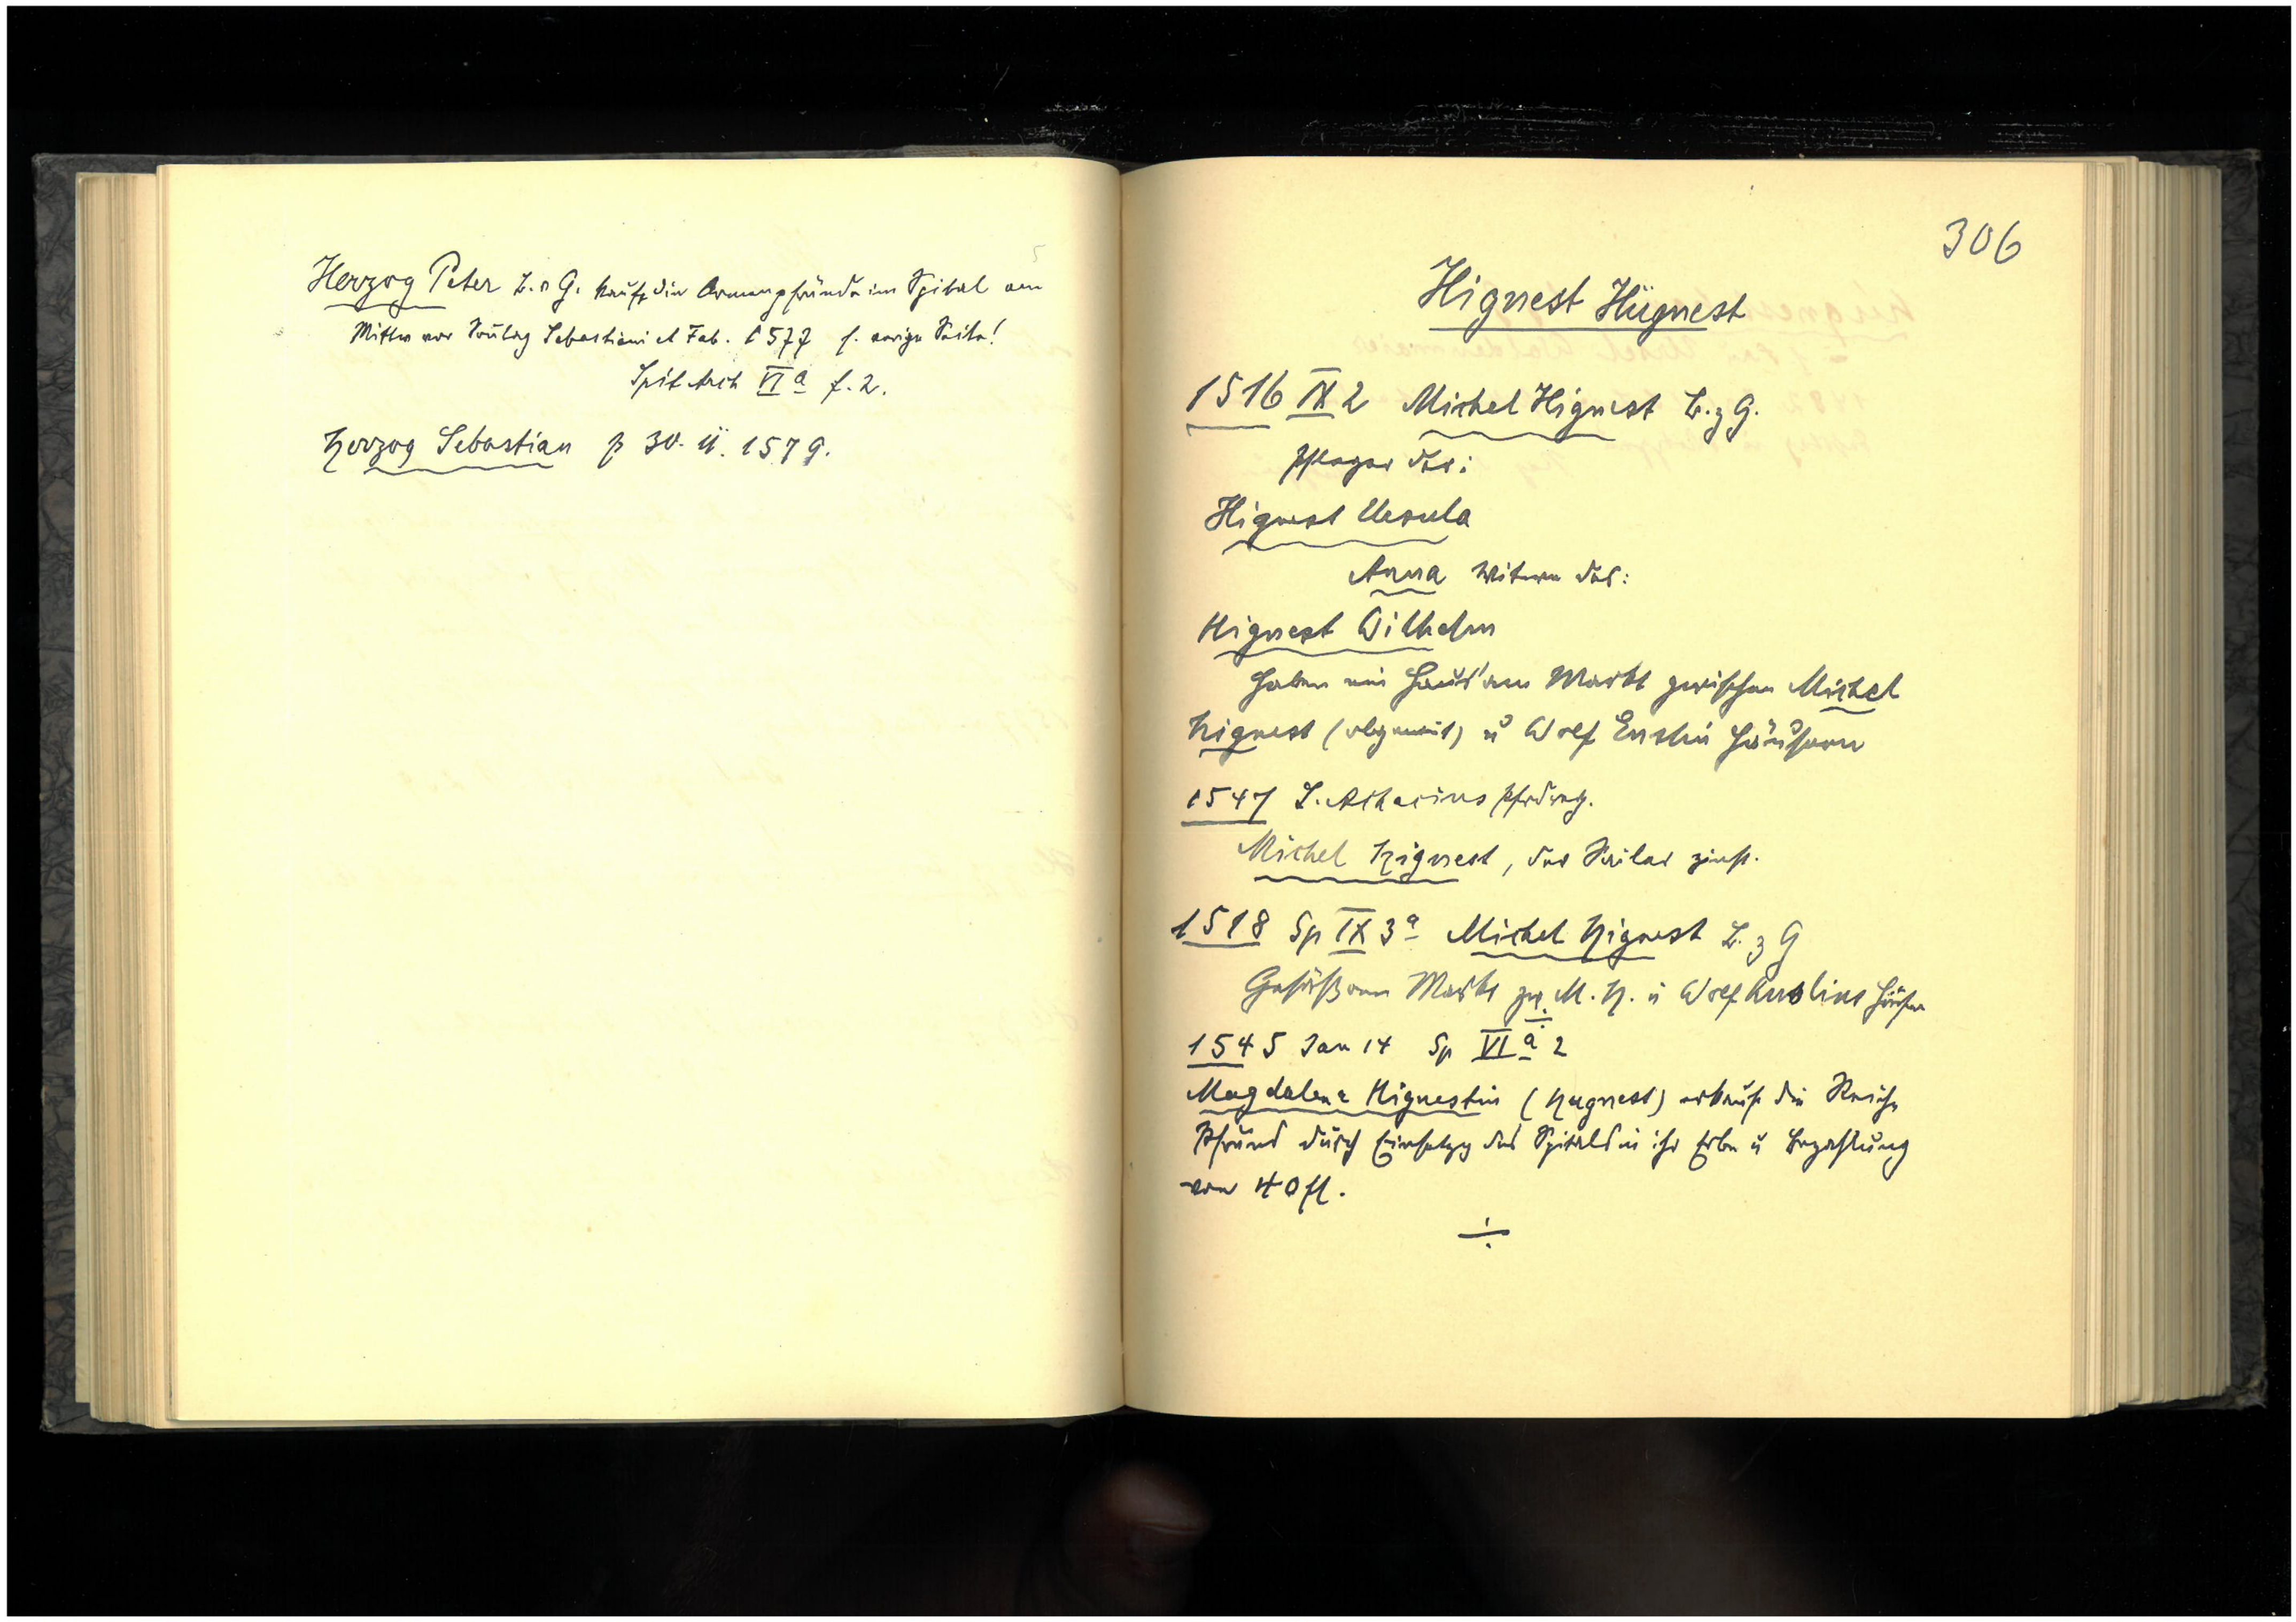 Herzog Peter B. z G. kauft die Armenpfründe im Spital am
Mittw vor Sonntag Sebastiani et Fab. 1577 s. vorige Seite!
Spit Arch VI a f. 2.
Herzog Sebastian p 30. II. 1579.
306
Hignest Hügnest
1516 IX 2 Michel Hignest B. z G.
Pfleger der:
Hignest Ursula
Anna Witwe des:
Hignest Wilhelm
haben ein Haus am Markt zwischen Michel
Hignest (obgenant) u Wolf Enslin Häusern
1547 S. Achacius
Michel Hignest, der Seiler zinst.
1518 Sp IX 3 a Michel Hignest B. z G
Gesäß am Markt zw. M. H. u Wolf Enslins Häuser
1545 Jan 14 Sp VI a 2
Magdalena Hignestin (Hugnest) erkauft die Reich
Pfründ durch Einsetzg des Spitals in ihr Erbe u Bezahlung
von 40 fl.